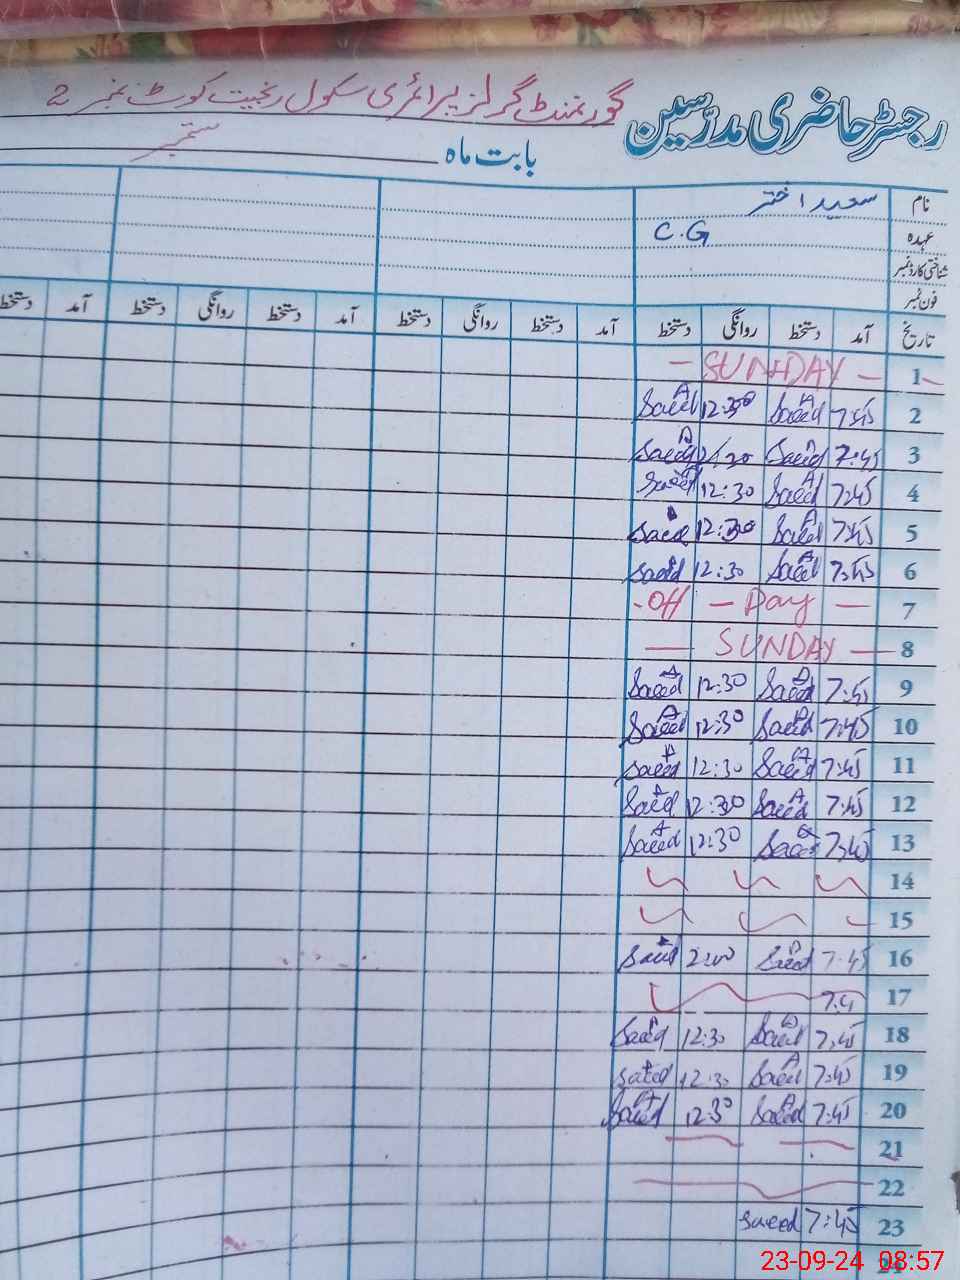 رجسٹر حاضری مدرسین گورنمنٹ گرلز پرائمری سکول رنجیت کوٹ نمبر 2
بابت ماہ ستمبر
نام سعید اختر
عہدہ C.G
شناختی کارڈ نمبر
فون نمبر
تاریخ آمد دستخط روانگی دستخط آمد دستخط روانگی دستخط آمد دستخط روانگی دستخط آمد دستخط
1 — SUNDAY —
2 7:45 Saeed A 12:30 Saeed A
3 7:45 Saeed A 12:30 Saeed A
4 7:45 Saeed A 12:30 Saeed A
5 7:45 Saeed A 12:30 Saeed
6 7:45 Saeed A 12:30 Saeed
7 - Off — Day —
8 — SUNDAY —
9 7:45 Saeed A 12:30 Saeed A
10 7:45 Saeed A 12:30 Saeed A
11 7:45 Saeed A 12:30 Saeed A
12 7:45 Saeed A 12:30 Saeed A
13 7:45 Saeed A 12:30 Saeed A
14
15
16 7:45 Saeed A 2:00 Saeed A
17
18 7:45 Saeed A 12:30 Saeed A
19 7:45 Saeed A 12:30 Saeed A
20 7:45 Saeed A 12:30 Saeed A
21
22
23 7:45 Saeed
24
23-09-24 08:57